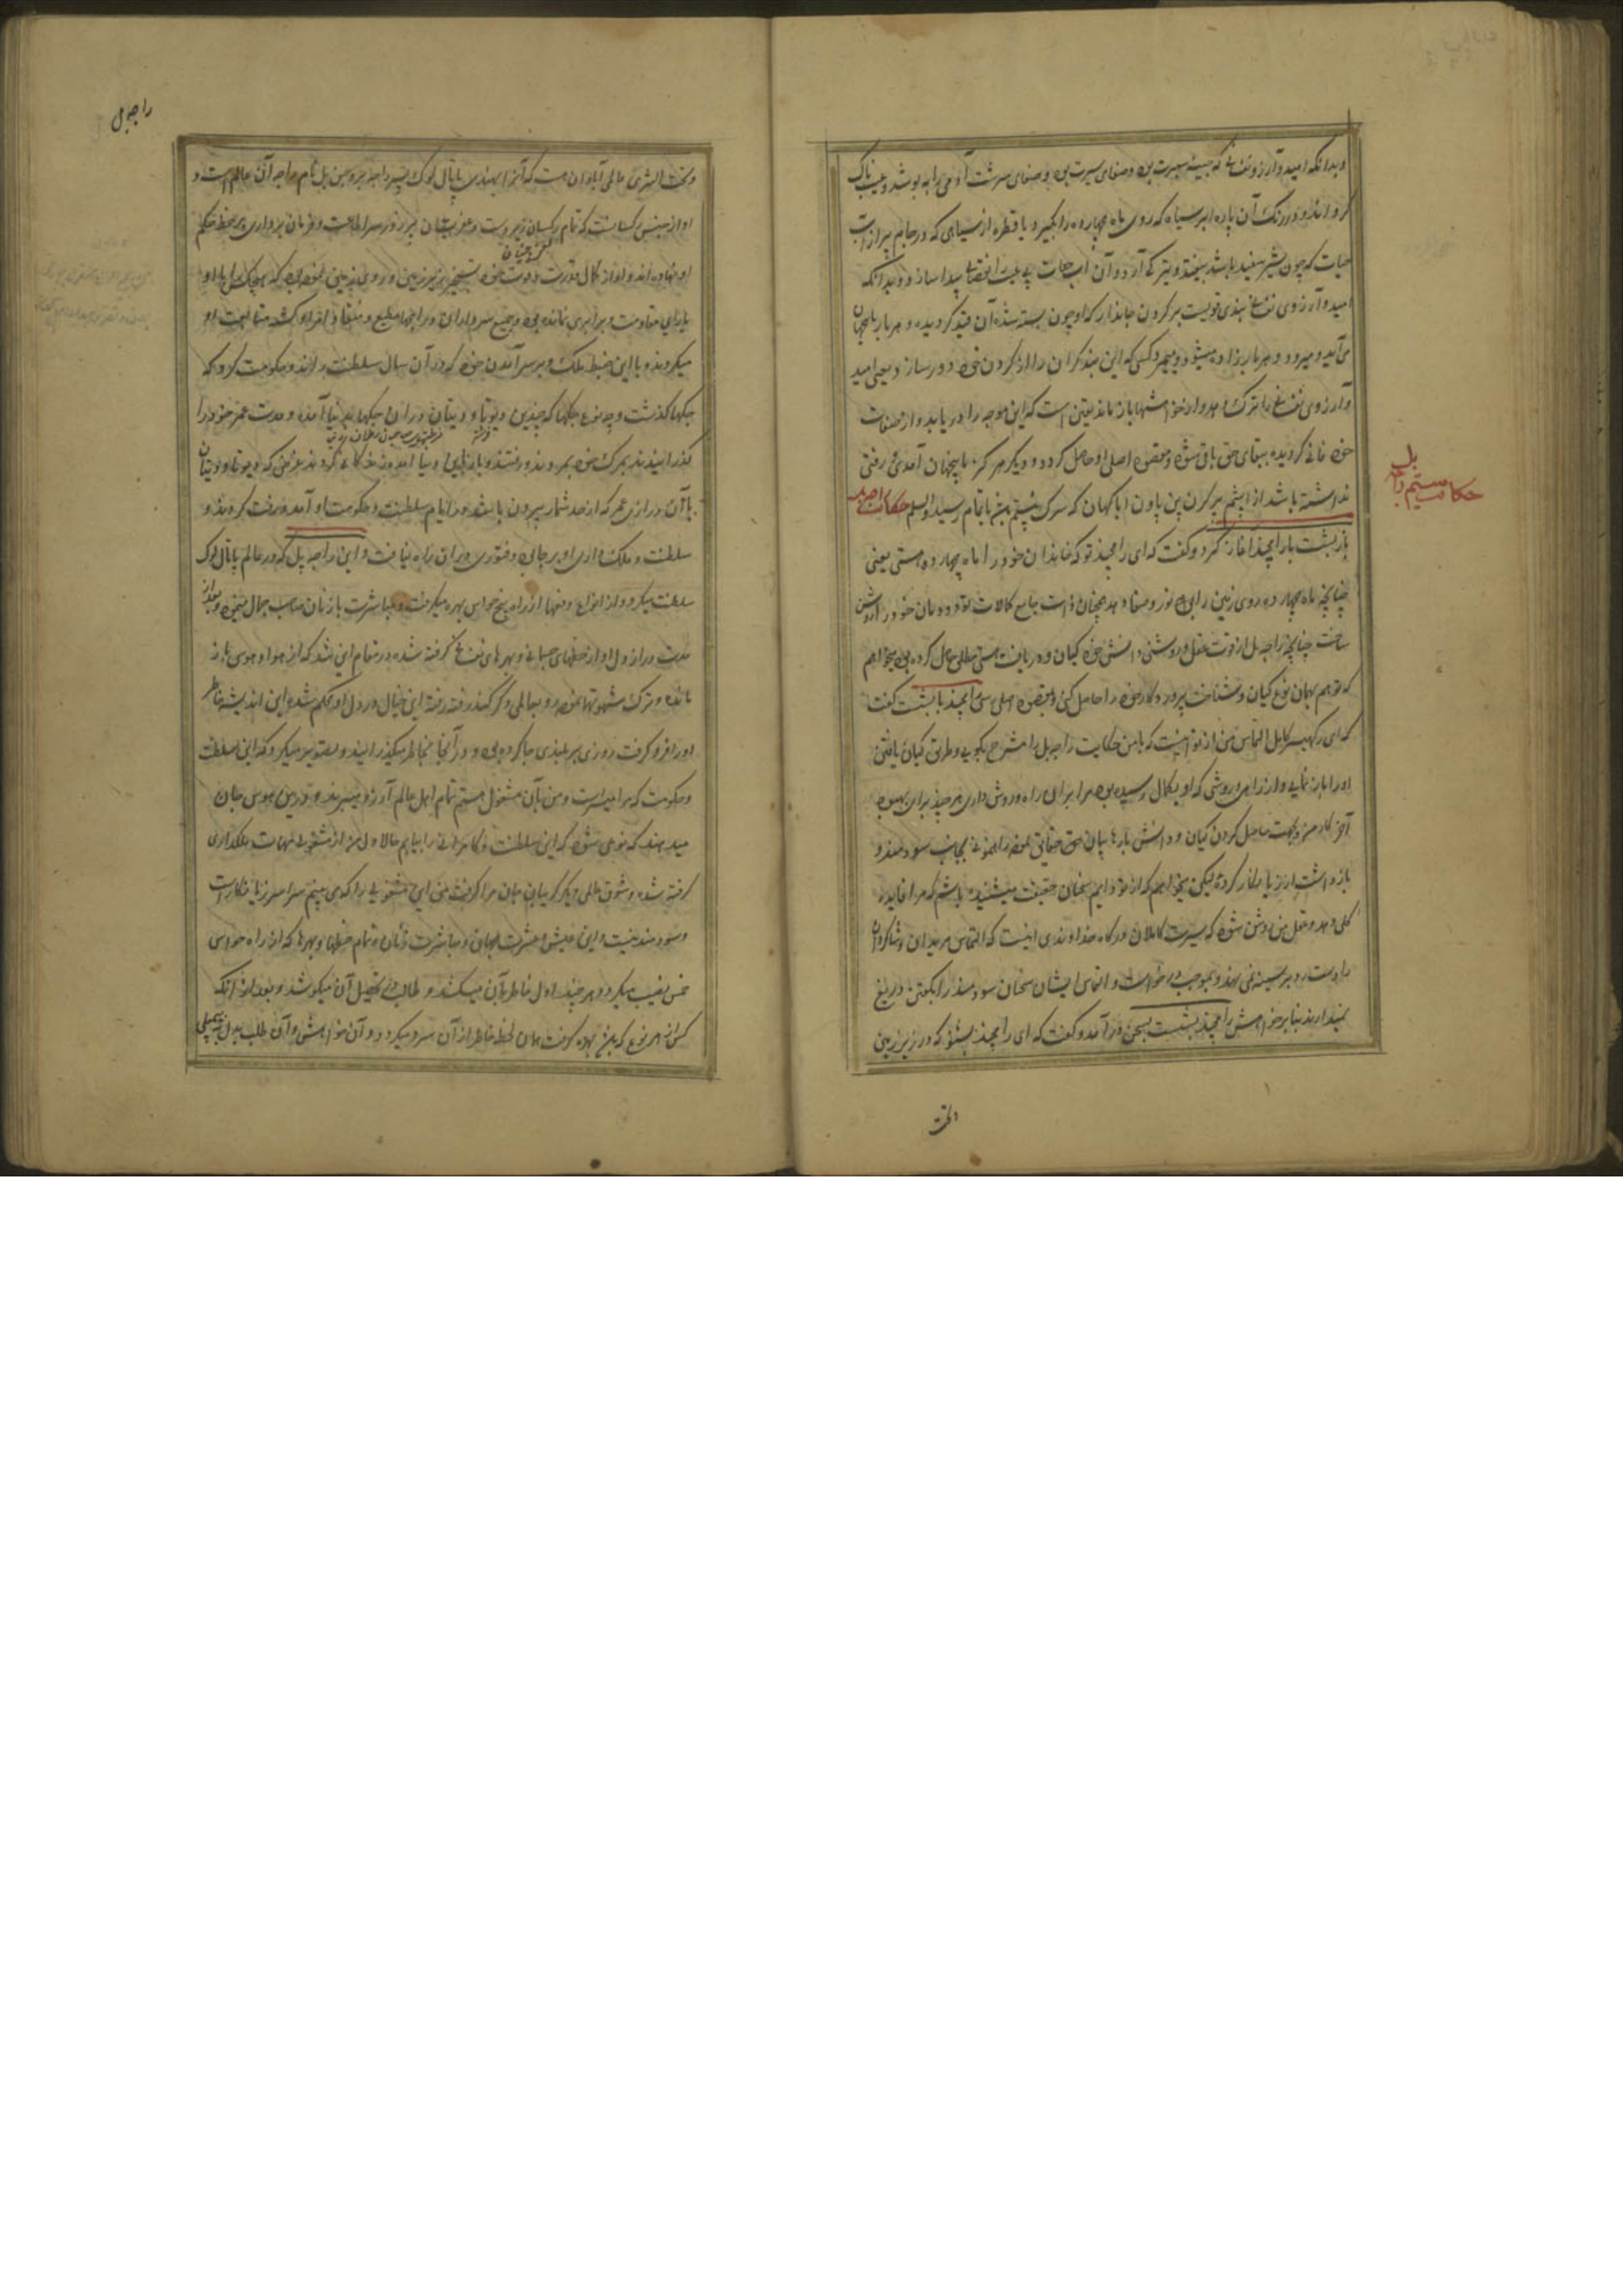 وبدانکه امید و آرزو نفسانی که
گرداند و در رنگ آن پاره ابر سیاه که روی ماه چهارده را بگیرد یا قطره از سیاهی که در جام پر از آب
حیات که چون شیر سفید باشد بیفتد و آن آب حیات پیدا سازد و بدانکه
امید و آرزوی نفسانی بندی قویست بر گردن جاندار که او چون بسته شده آن قید گردیده و هر بار باینجهان
می آید و میرود و هر بار زاده میشود و میمیرد و کسی که این بند گران را از گردن خود دور سازد یعنی امید
و آرزوی نفسانی را ترک دهد و از خواهشها باز ماند یقین است که این مرتبه را دریابد و از صفات
خود فانی گردیده ببقای حق باقی شود و مقصود اصلی او حاصل گردد و دیگر هرگز باینجهان آمدن و رفتن
نداشته باشد از اپشم پرکرن پن پاون اپاکهیان که سرگ بیستم باتمام رسید والسلم حکایت راجه بل
حکایت بیستم راجه بل
باز بشت با رامچند آغاز کرد و گفت که ای رامچند تو که خاندان خود را ماه چهارده هستی یعنی
چنانچه ماه چهارده روی زمین را نور و صفا دهد همچنان ذات جامع کمالات تو دودمان خود را روشن
ساخت چنانچه راجه بل از قوت عقل و روشنی دانش خود گیان و دریافت هستی مطلق حاصل کرده بود میخواهم
که تو هم بهمان نوع گیان و شناخت پروردگار خود را حاصل کنی و بمقصود اصلی رسی رامچند با بشت گفت
که ای رکهیسر کامل التماس من از تو اینست که با من حکایت راجه بل را مشرح بگویی و طریق گیان یافتن
او را باز نمایی و از راهی و روشی که او بکمال رسیده بود مرا بر آن راه و روش داری هر چند برای بهبود
آخر کار من و بجهت حاصل کردن گیان و دانش بارها بیان حق حقایق نموده راهنمونی بجانب سودمند و
بازداشت از زیانکار کرده لیکن میخواهم که از تو دایم سخنان حقیقت میشنیده باشم که مرا فایده
کلی دهد و عقل من روشن شود که سیرت کاملان درگاه خداوندی اینست که التماس مریدان و شاگردان
را دست رد بر سینه نمی نهند و بموجب درخواست و التماس ایشان سخنان سودمند را بگفتن دریغ
نمیدارند بنابر خواهش رامچند بشست بسخن درآمد و گفت که ای رامچند بشنو که در زیر زمین
وتحت
راجه بل
وتحت الثری عالمی آبادان هست که آنرا بهندی پاتال لوک پسر راجه بروچن بل نام راجه آن عالم است و
او از جنس راکسانست که تمام راکسان زبردست و عفریتان پرزور سر اطاعت و فرمان برداری بر خط حکم
او نهاده اند و او از کمال قدرت و قوت خود تسخیر زیر زمین و روی زمین نموده بود که هیچکس را با او
یارای مقاومت و برابری نمانده بود و جمیع سرداران و راجها مطیع و منقاد او گشته متابعت او
میکردند و با این ضبط ملک و بر سر آمدن خود کرور آن سال سلطنت راند و حکومت کرد که
جگها گذشت و چه نوع جگها که چندین دیوتا و دیتان در آن جگها بدنیا آمده و مدت عمر خود را
گذرانیدند بمرگ خود بمردند و رفتند و باز بدنیا آمدند غرض که دیوتا و دیتان
با آن درازی عمر که از حد شمار بیرون باشد در ایام سلطنت و حکومت او آمد و رفت کردند و
سلطنت و ملک داری او بر جای بود و فتوری بر آن راه نیافت و این راجه بل که در عالم پاتال لوک
سلطنت میکرد و از انواع از راه پنج حواس بهره میگرفت و مباشرت با زنان صاحب جمال مینمود بعد از
مدت دراز دل او از حظهای جسمانی و بهرهای نفسانی گرفته شده در مقام این شد که از هوا و هوس باز
مانده و ترک شهوتها نموده رو بعالمی دیگر کند رفته رفته این خیال در دل او محکم شده این اندیشه خاطر
او را فرو گرفت روزی بر بلندی جا کرده بود و در آنجا بخاطر میگذرانید و تصور میکرد که این سلطنت
و حکومت که مرا میسر است و من بآن مشغول هستم تمام اهل عالم آرزو میبرند و درین هوس جان
میدهند که نوعی شود که این سلطنت و کامرانی را بیابم حالا دل من از مشغولی مهمات ملکداری
گرفته شده و شوق عالمی دیگر گریبان جان مرا گرفت من این مشغولی را که می بینم سراسر زیانکار است
و سودمند نیست و این عیش و عشرت جهان و مباشرت زنان و تمام حظها و بهرها که از راه حواس
خمس نصیب میگردد هر چند اول خاطر بآن میکشد و طالب تحصیل آن میکوشد و بعد از آنکه
کس از هر نوع که باشد بهره گرفت همان لحظه خاطر از آن سرد میگردد و آن خواهش و آن طلب